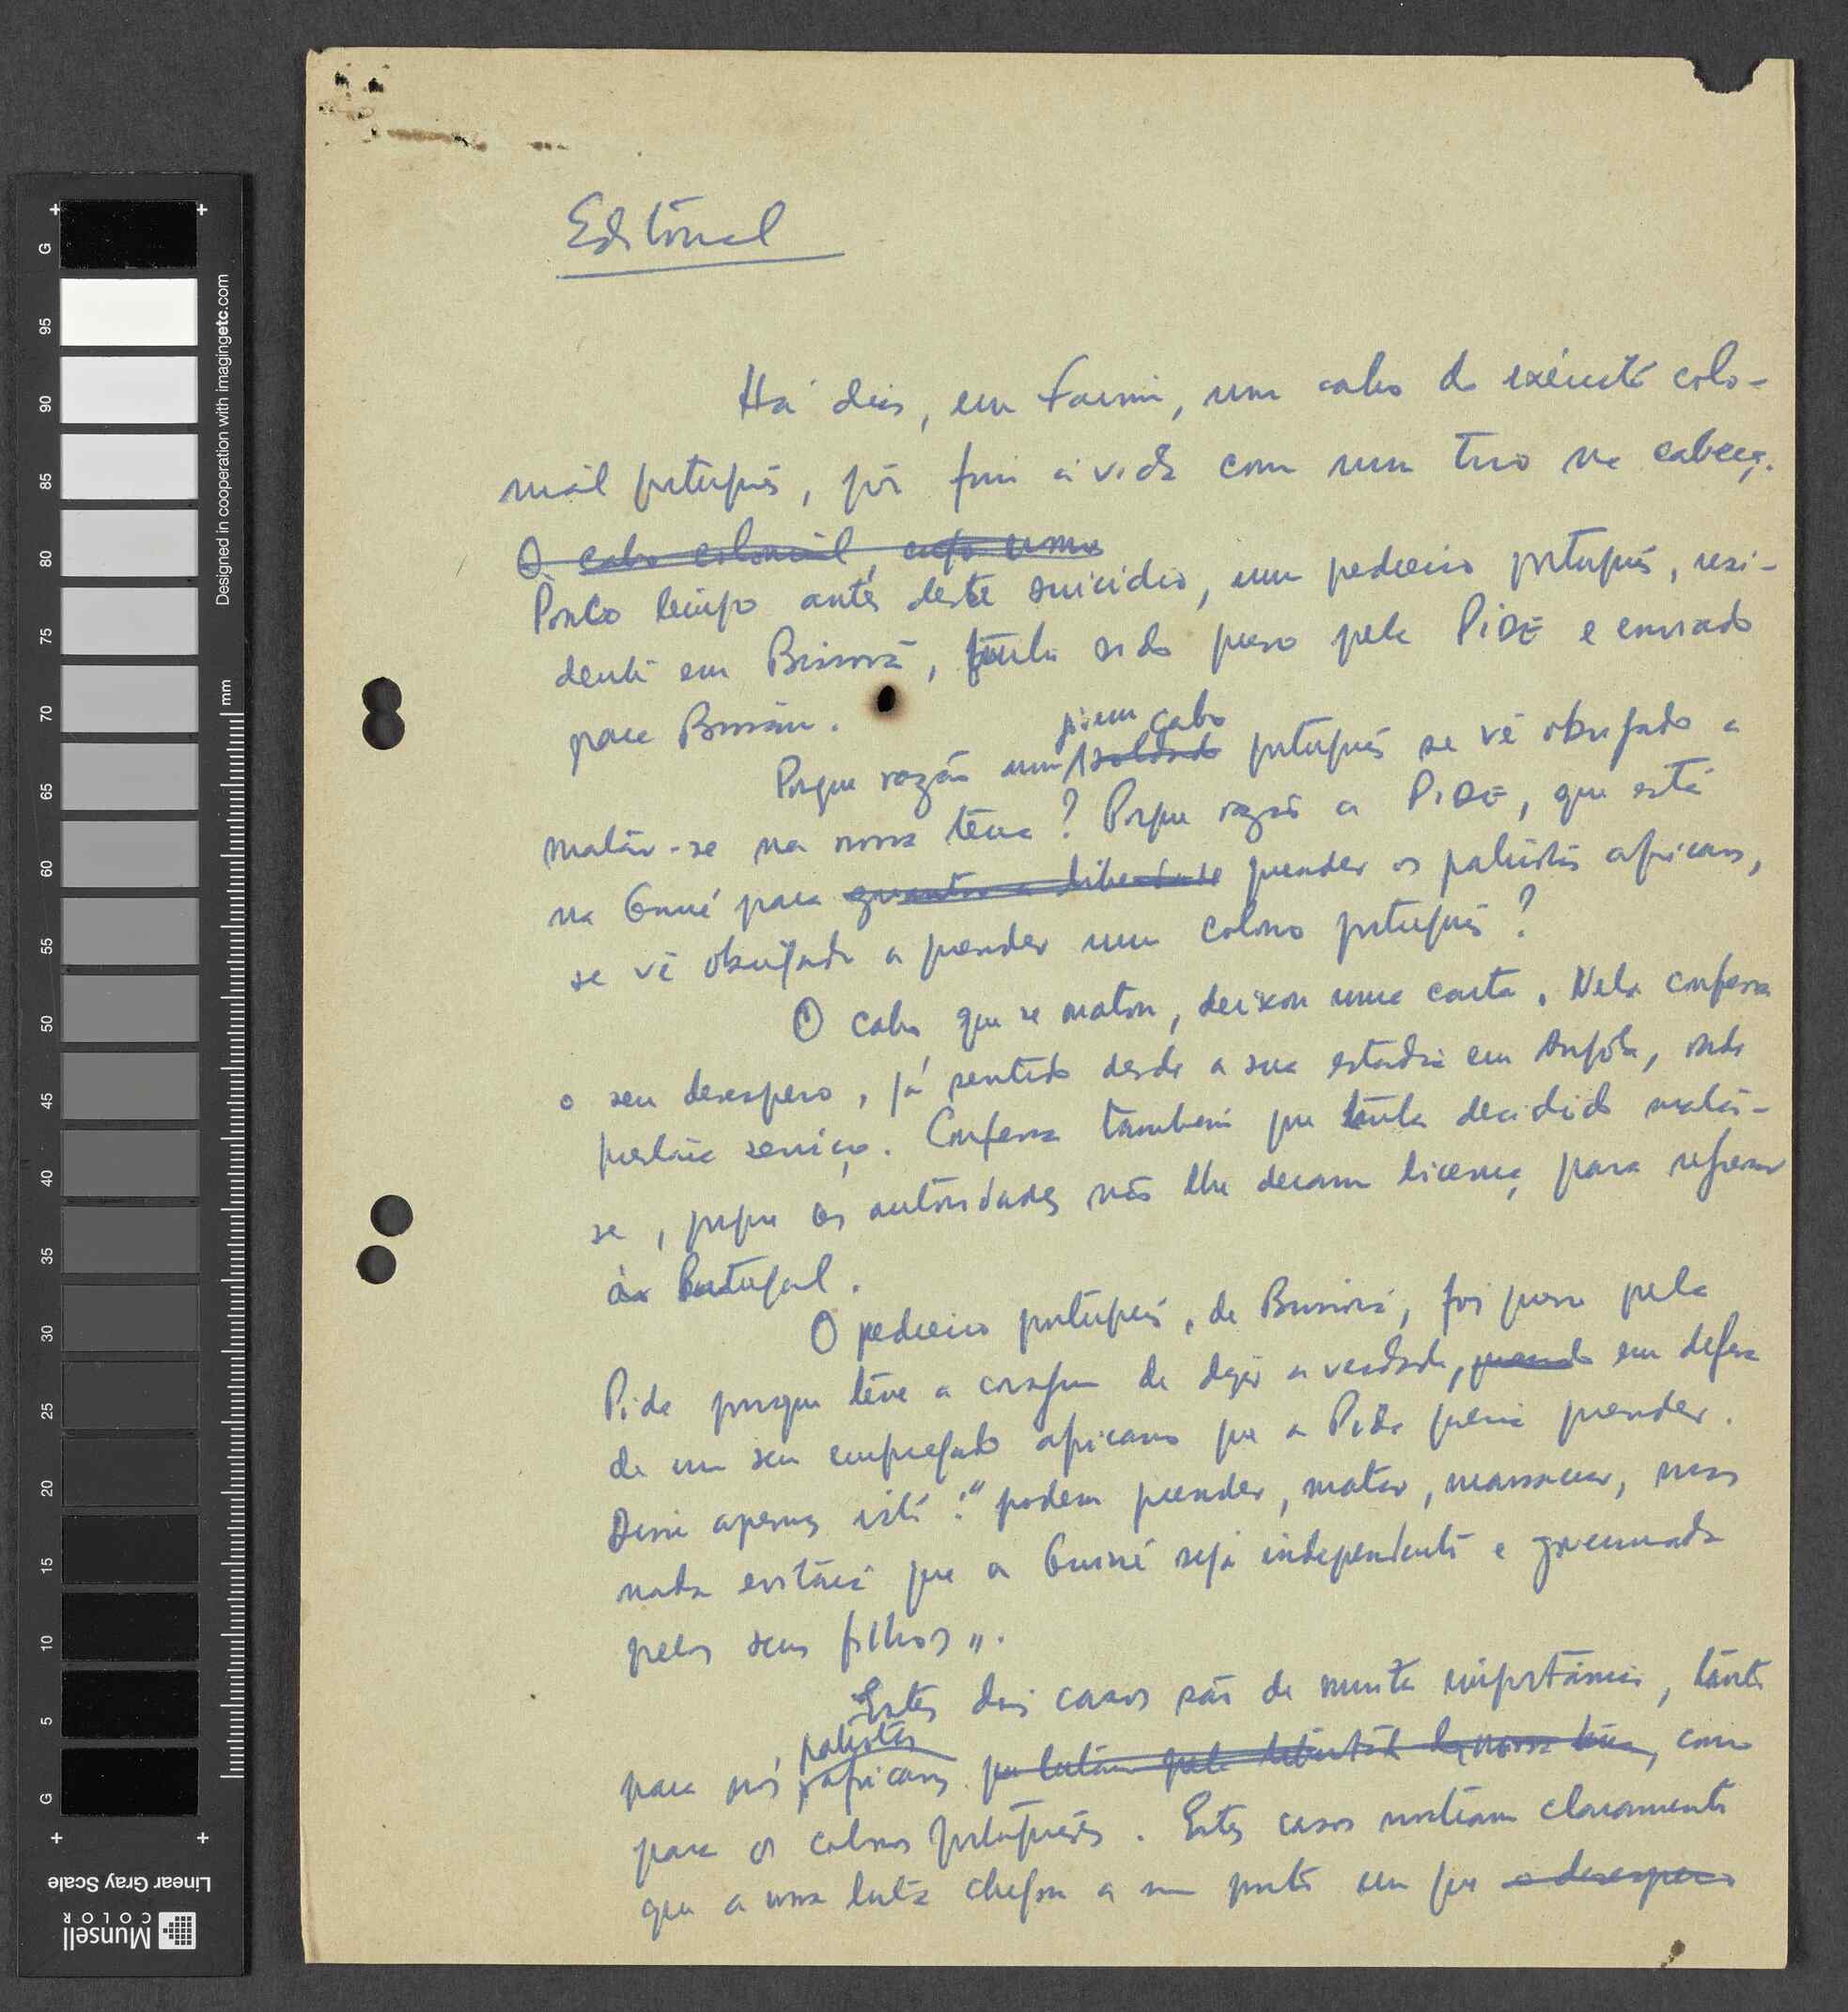 Editorial
Há dias, em Farim, um cabo do exército colo-
nial português, pôs fim à vida com um tiro na cabeça.
O cabo colonial, cujo nome
Pouco tempo antes deste suicídio, um pedreiro português, resi-
dente em Bissorã, tinha sido preso pela PIDE e enviado
para Bissau.
jovem cabo
Porque razão um soldado português se vê obrigado a
matar-se na nossa terra? Porque razão a PIDE, que está
na Guiné para prender os patriotas africanos,
se vê obrigada a prender um colono português?
O cabo que se matou, deixou uma carta. Nela confessa
o seu desespero, já sentido desde a sua estadia em Angola, onde
prestara serviço. Confessa também que tinha decidido matar-
se, porque as autoridades não lhe deram licença para regressar
a Portugal.
O pedreiro português, de Bissorã, foi preso pela
Pide porque teve a coragem de dizer a verdade, quando em defesa
de um seu empregado africano que a PIDE queria prender.
Disse apenas isto: "podem prender, matar, massacrar, mas
nada evitará que a Guiné seja independente e governada
pelos seus filhos".
Estes dois casos são de muita importância, tanto
, patriotas
para nós africanos que lutam pela liberdade da nossa terra, como
para os colonos portugueses. Estes casos mostram claramente
que a nossa luta chegou a um ponto em que o desespero
Designed in cooperation with imagingetc.com
mm
G
95
90
85
80
75
70
65
60
55
50
45
40
35
30
25
20
15
10
5
G
Linear Gray Scale
Munsell
COLOR